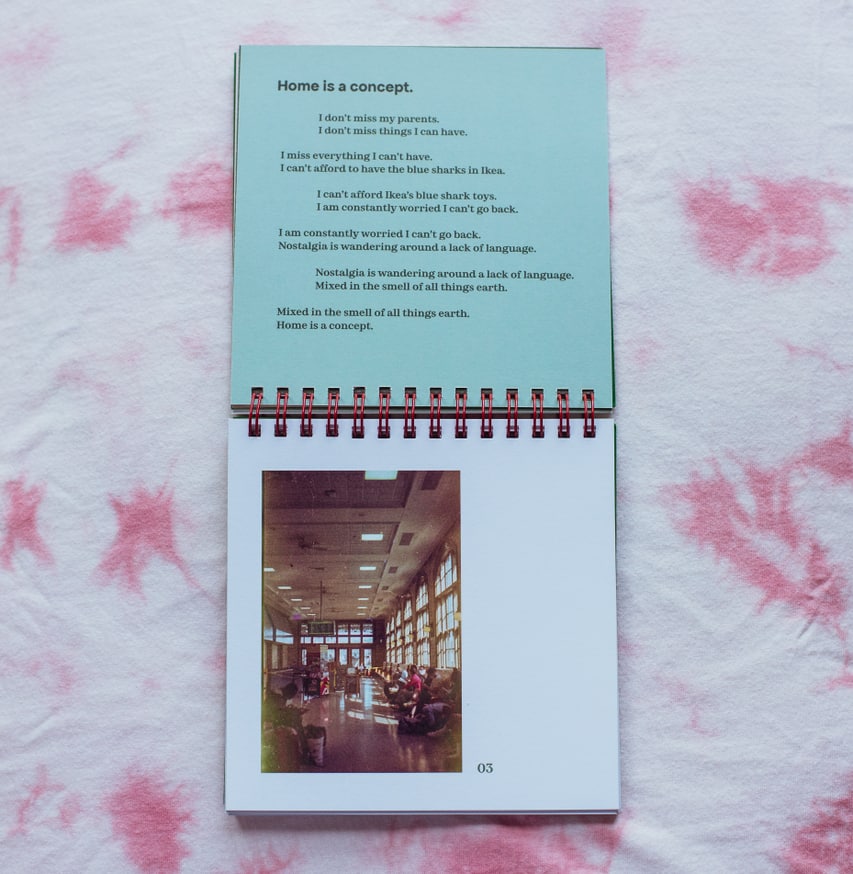 Home is a concept.
I don't miss my parents.
I don't miss things I can have.
I miss everything I can't have.
I can't afford to have the blue sharks in Ikea.
I can't afford Ikea's blue shark toys.
I am constantly worried I can't go back.
I am constantly worried I can't go back.
Nostalgia is wandering around a lack of language.
Nostalgia is wandering around a lack of language.
Mixed in the smell of all things earth.
Mixed in the smell of all things earth.
Home is a concept.
03